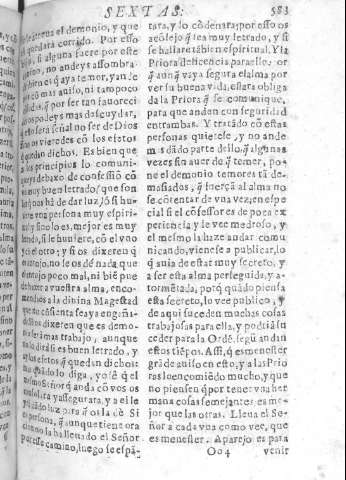 SEXTAS. 583
atreua el demonio, y que
quedara corrido. Por esso
si alguna fuere por este
camino, no andeys assombra
das bien es q̃ aya temer, y an
de cõ mas auiso, ni tampoco
q̃ por ser tan fauoreci
dos podeys mas descuydar,
q̃ esto sera señal no ser de Dios
sino os vieredes cõ los efetos
q̃ quedan dichos. Es bien que
a los principios lo comuni
queys debaxo de confessiõ cõ
muy buen letrado, que son
los q̃ nos hã de dar luz, ò si hu
uiere vna persona muy espiri
tual, y sino lo es, mejor es muy
letrado, si le huuiere, cõ el vno
y cõ el otro; y si os dixeren q̃
es antojo, no se os dè nada, que
el antojo poco mal, ni biẽ pue
de hazer a vuestra alma, enco
mendaos a la diuina Magestad
que no cõsienta seays engaña
da. Si os dixeren que es demo
nio, serà mas trabajo, aunque
no dirà si es buen letrado, y
ay los efetos q̃ quedan dichos,
mas quãdo lo diga, yo sè q̃ el
mismo Señor q̃ anda cõ vos os
consolarà y assegurarà, y a el le
yrà dãdo luz para q̃ os la dè. Si
es persona, q̃ aunque tiene ora
cion no la ha lleuado el Señor
por esse camino, luego se espã-
tara, y lo cõdenara; por esso os
acõsejo q̃ sea muy letrado, y si
se hallare tãbien espiritual. Y la
Priora dè licencia para ello: por
q̃ aunq̃ vaya segura el alma por
ver su buena vida, estarà obliga
da la Priora q̃ se comunique,
para que anden con seguridad
entrambas. Y tratado cõ estas
personas quietese, y no ande
mas dãdo parte dello, q̃ algunas
vezes sin auer de q̃ temer, po-
ne el demonio temores tã de-
masiados, q̃ fuerçã al alma no
se cõtentar de vna vez; en espe
cial si el cõfessor es de poca ex
periencia y le vee medroso, y
el mesmo la haze andar comu
nicando, vienese a publicar, lo
q̃ auia de estar muy secreto, y
a ser esta alma perseguida, y a-
tormẽtada, porq̃ quãdo piensa
esta secreto, lo vee publico, y
de aqui suceden muchas cosas
trabajosas para ella, y podriã su
ceder para la Ordẽ, segũ andan
estos tiẽpos. Assi, q̃ es menester
grãde auiso en esto, y a las Prio
ras lo encomiẽdo mucho, y que
no piensen q̃ por tener vna her
mana cosas semejantes es me-
jor que las otras. Lleua el Se-
ñor a cada vna como vee, que
es menester. Aparejo es para
Oo 4 venir